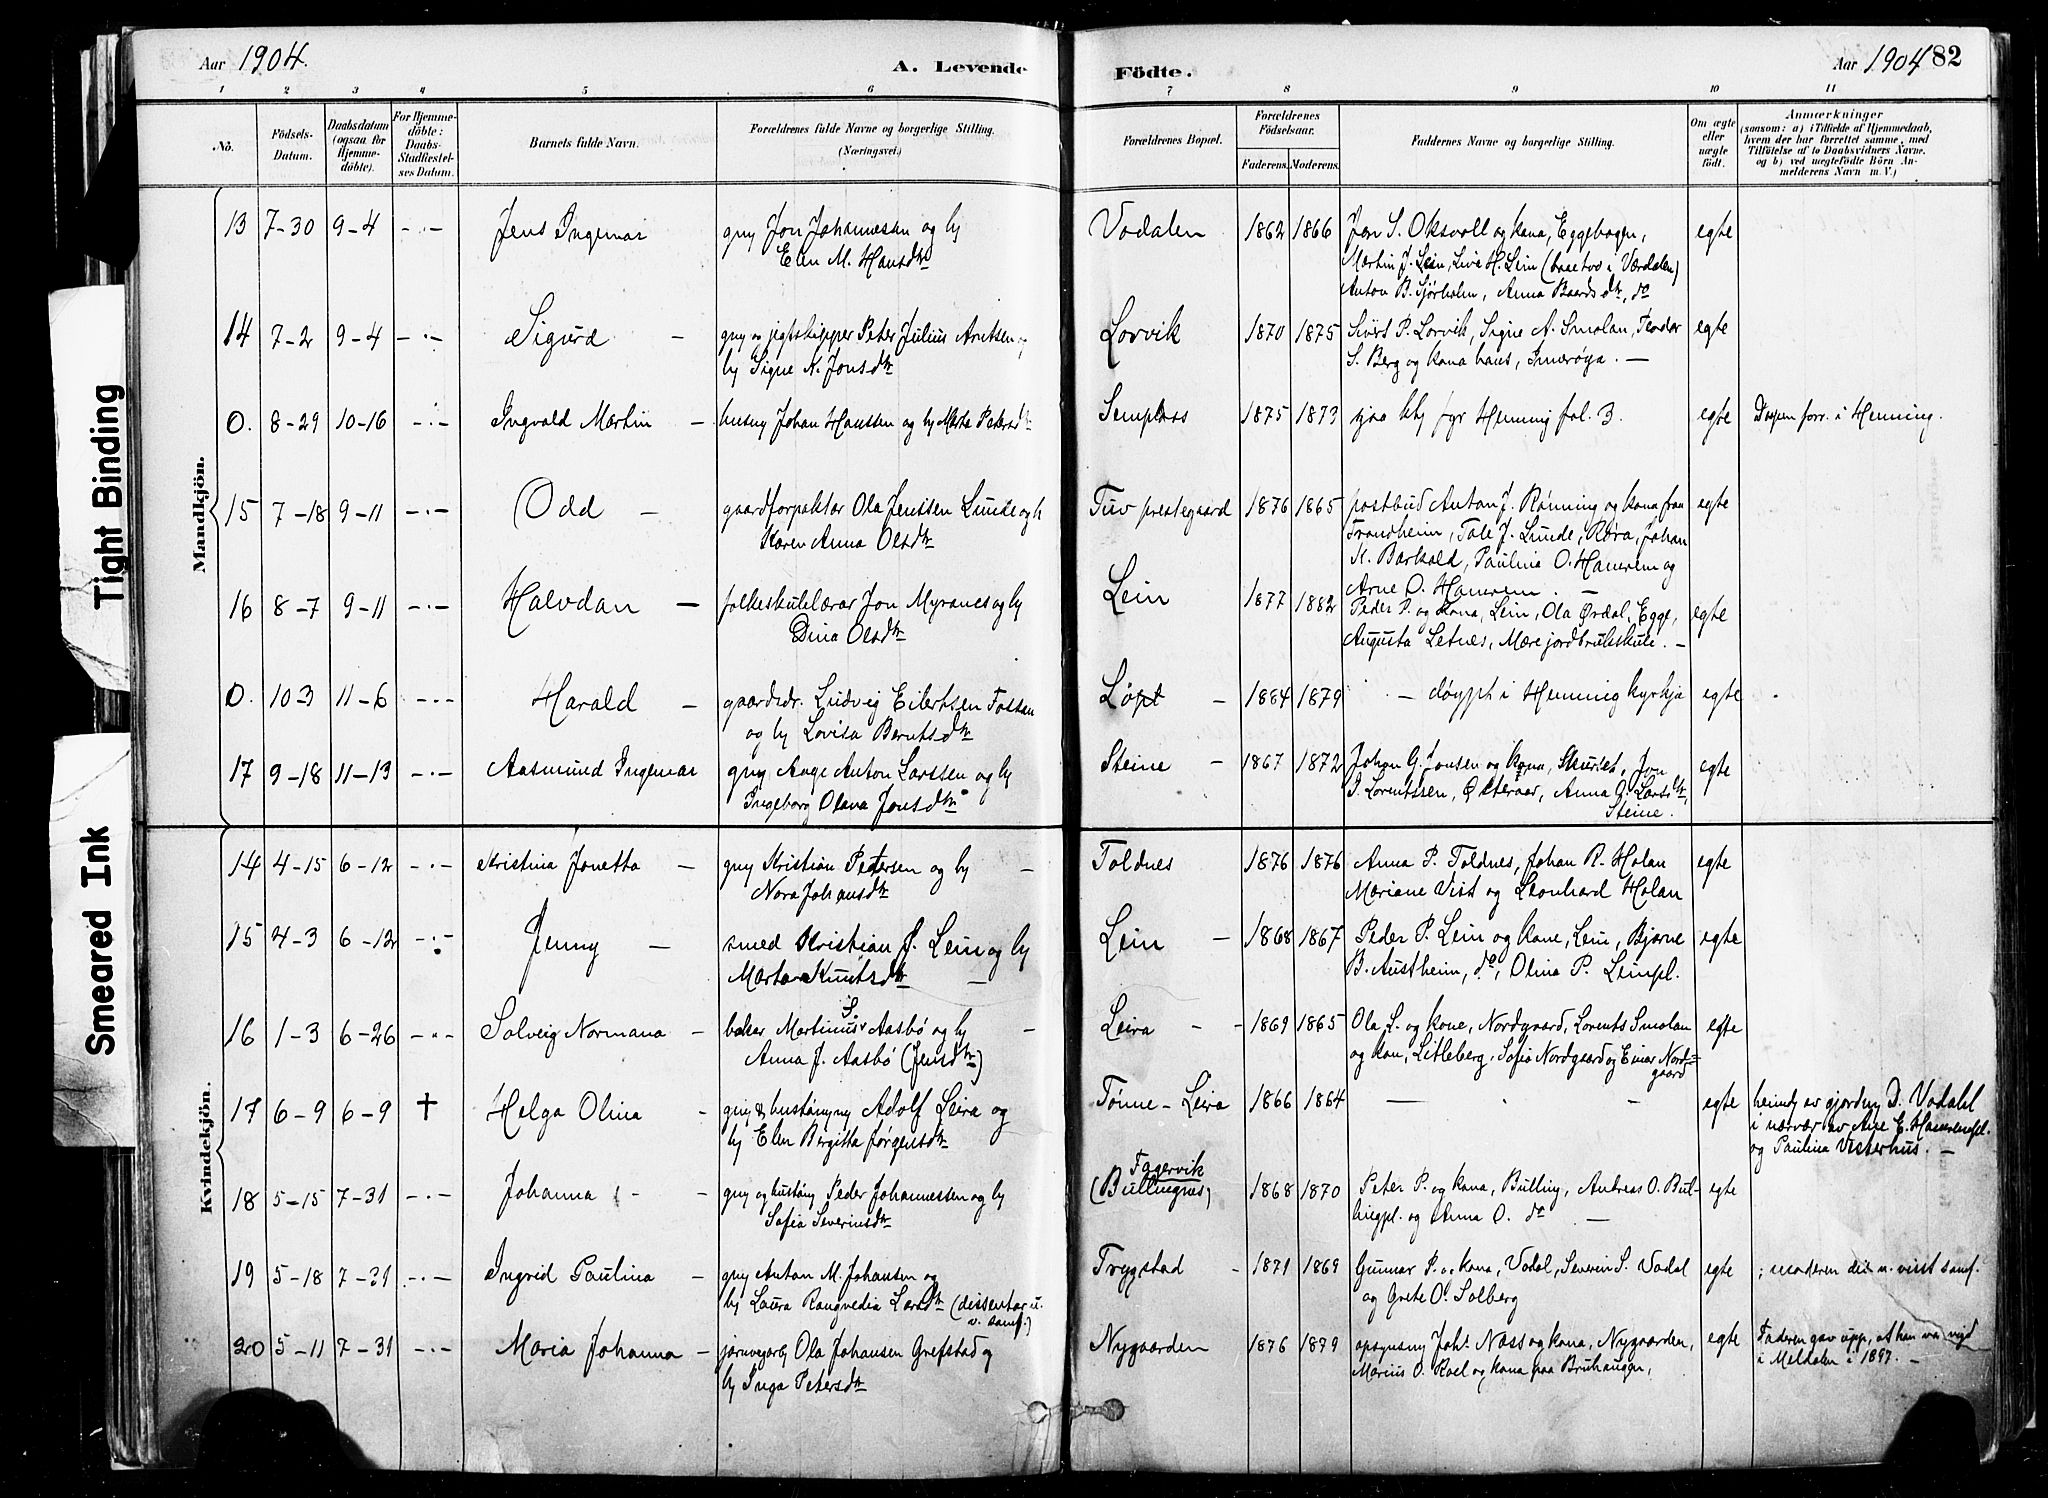 Aar 1904.
A. Levende Födte.
Aar 1904 82
1 2 3 4 5 6 7 8 9 10 11
No.
Födsels-Datum.
Daabsdatum (ogsaa for Hjemme-döbte).
For Hjemme-döbte: Daabs-Stadfæstel-ses Datum.
Barnets fulde Navn.
Forældrenes fulde Navne og borgerlige Stilling. (Næringsvei.)
Forældrenes Bopæl.
Forældrenes Födselsaar.
Faderens. Moderens.
Faddernes Navne og borgerlige Stilling.
Om ægte eller uægte födt.
Anmærkninger
(saasom: a) i Tilfælde af Hjemmedaab, hvem der har forrettet samme, med Tilföielse af to Daabsvidners Navne, og b) ved uegtefödte Börn An-melderens Navn m. V.)
Tight Binding
Smeared Ink
Mandkjön.
13 7-30 9-4 - - Jens Ingemar
gmy Jon Johannesen og hy
Elen M. Hansdtr
Vodalen 1862 1866
Jon S. Oksvoll og kona, Eggebogen,
Martin J. Lein, Live H. Lein (baae tvo i Værdalen)
Anton B. Sjørholm, Anna Baardsdtr, do
egte
14 7-2 9-4 - - Sigurd -
gmy og jegtskipper Peter Julius Arntsen og
hy Signe N. Jonsdtr
Lorvik 1870 1875
Sivert P. Lorvik, Signe A. Smolan, Teodor
S. Berg og kona hans, Inderøya. -
egte
0. 8-29 10-16 - - Ingvald Martin -
husmy Johan Hanssen og hy Marta Petersdtr
Semplass 1875 1873
Henning fol. 3.
egte
Daapen forr. i Henning.
15 7-18 9-11 - - Odd -
gaardforpaktar Ola Jenssen Lunde og h
Karen Anna Olsdtr
Tuv prestegaard 1876 1865
postbud Anton J. Rønning og kona fraa
Trondheim, Tale J. Lunde, Røra, Johan
K. Barkald, Paulina O. Hanerem og
Arne O. Hanerem. -
egte
16 8-7 9-11 - - Halvdan -
folkeskulelærar Jon Myranes og hy
Dina Olsdtr
Lein 1877 1882
Peder P. og kona, Lein, Ola Ørdal, Egge,
Augusta Letnes, Mære jordbrukskule. -
egte
0. 10-3 11-6 - - Harald -
gaardsdr. Ludvig Eilertsen Tostan
og hy Lovisa Berntsdtr
Løpt - 1884 1879
- døypt i Henning kyrkja
egte
17 9-18 11-13 - - Aasmund Ingemar
gmy Aage Anton Larssen og hy
Ingeborg Olava Jonsdtr
Steine - 1867 1872
Johan G. Jonsen og kona, Skuriet, Jon
P. Lorentssen, Østeraas, Anna O. Larsdtr,
Steine.
egte
Kvindekjön.
14 4-15 6-12 - - Kristina Jonetta -
gmy Kristian Petersen og hy -
Nora Johansdtr
Toldnes 1876 1876
Anna P. Toldnes, Johan R. Holan
Mariane Vist og Leonhard Holan
egte
15 4-3 6-12 - - Jenny -
smed Kristian J. Lein og hy
Marta Knutsdtr -
Lein - 1868 1867
Peder P. Lein og kone, Lein, Bjarne
B. Austheim, do, Olina P. Leinpl.
egte
16 1-3 6-26 - - Solveig Normana -
bakar Martinus S. Aasbø og hy -
Anna J. Aasbø (Jensdtr)
Leira - - 1869 1865
Ola L. og kone, Nordgaard, Lorents Smolan
og kon, Litleberg, Sofia Nordgaard og Einar Nord=
gaard
egte
17 6-9 6-9 † Helga Olina -
gmy & hustømmy Adolf Leira og
hy Elen Bergitta Jørgensdtr
Tønne - Leira 1866 1864
- -
egte
heimdy av gjordmy D. Vodahl
i nærvær av Ane E. Hanerempl.
og Paulina Vesterhus. -
18 5-15 7-31 - - Johanna - -
gmy og hustømy Peder Johannessen og hy
Sofia Severinsdtr
Fagervik
(Bullingnes) 1868 1870
Peter P. og kona, Bulling, Andreas O. Bul-
lingpl. og Anna O. do -
egte
19 5-18 7-31 - - Ingrid Paulina -
gmy Anton M. Johansen og
hy Laura Rangvedia Larsdtr (dissentar u.
v. samf.)
Trygstad - 1871 1869
Gunnar P. og kona, Vodal, Severin S. Vodal
og Grete O. Solberg
egte
; moderen dis. u. visst samf.
20 5-11 7-31 - - Maria Johanna -
jarnvegarb Ola Johansen Grefstad og
hy Inga Petersdtr
Nygaarden 1876 1879
opsynsmy Johs. Næss og kona, Nygaarden,
Marius O. Kael og kona fraa Bruhaugen,
egte
Faderen gav upp, at han va. vigd
i Meldalen i 1897. -